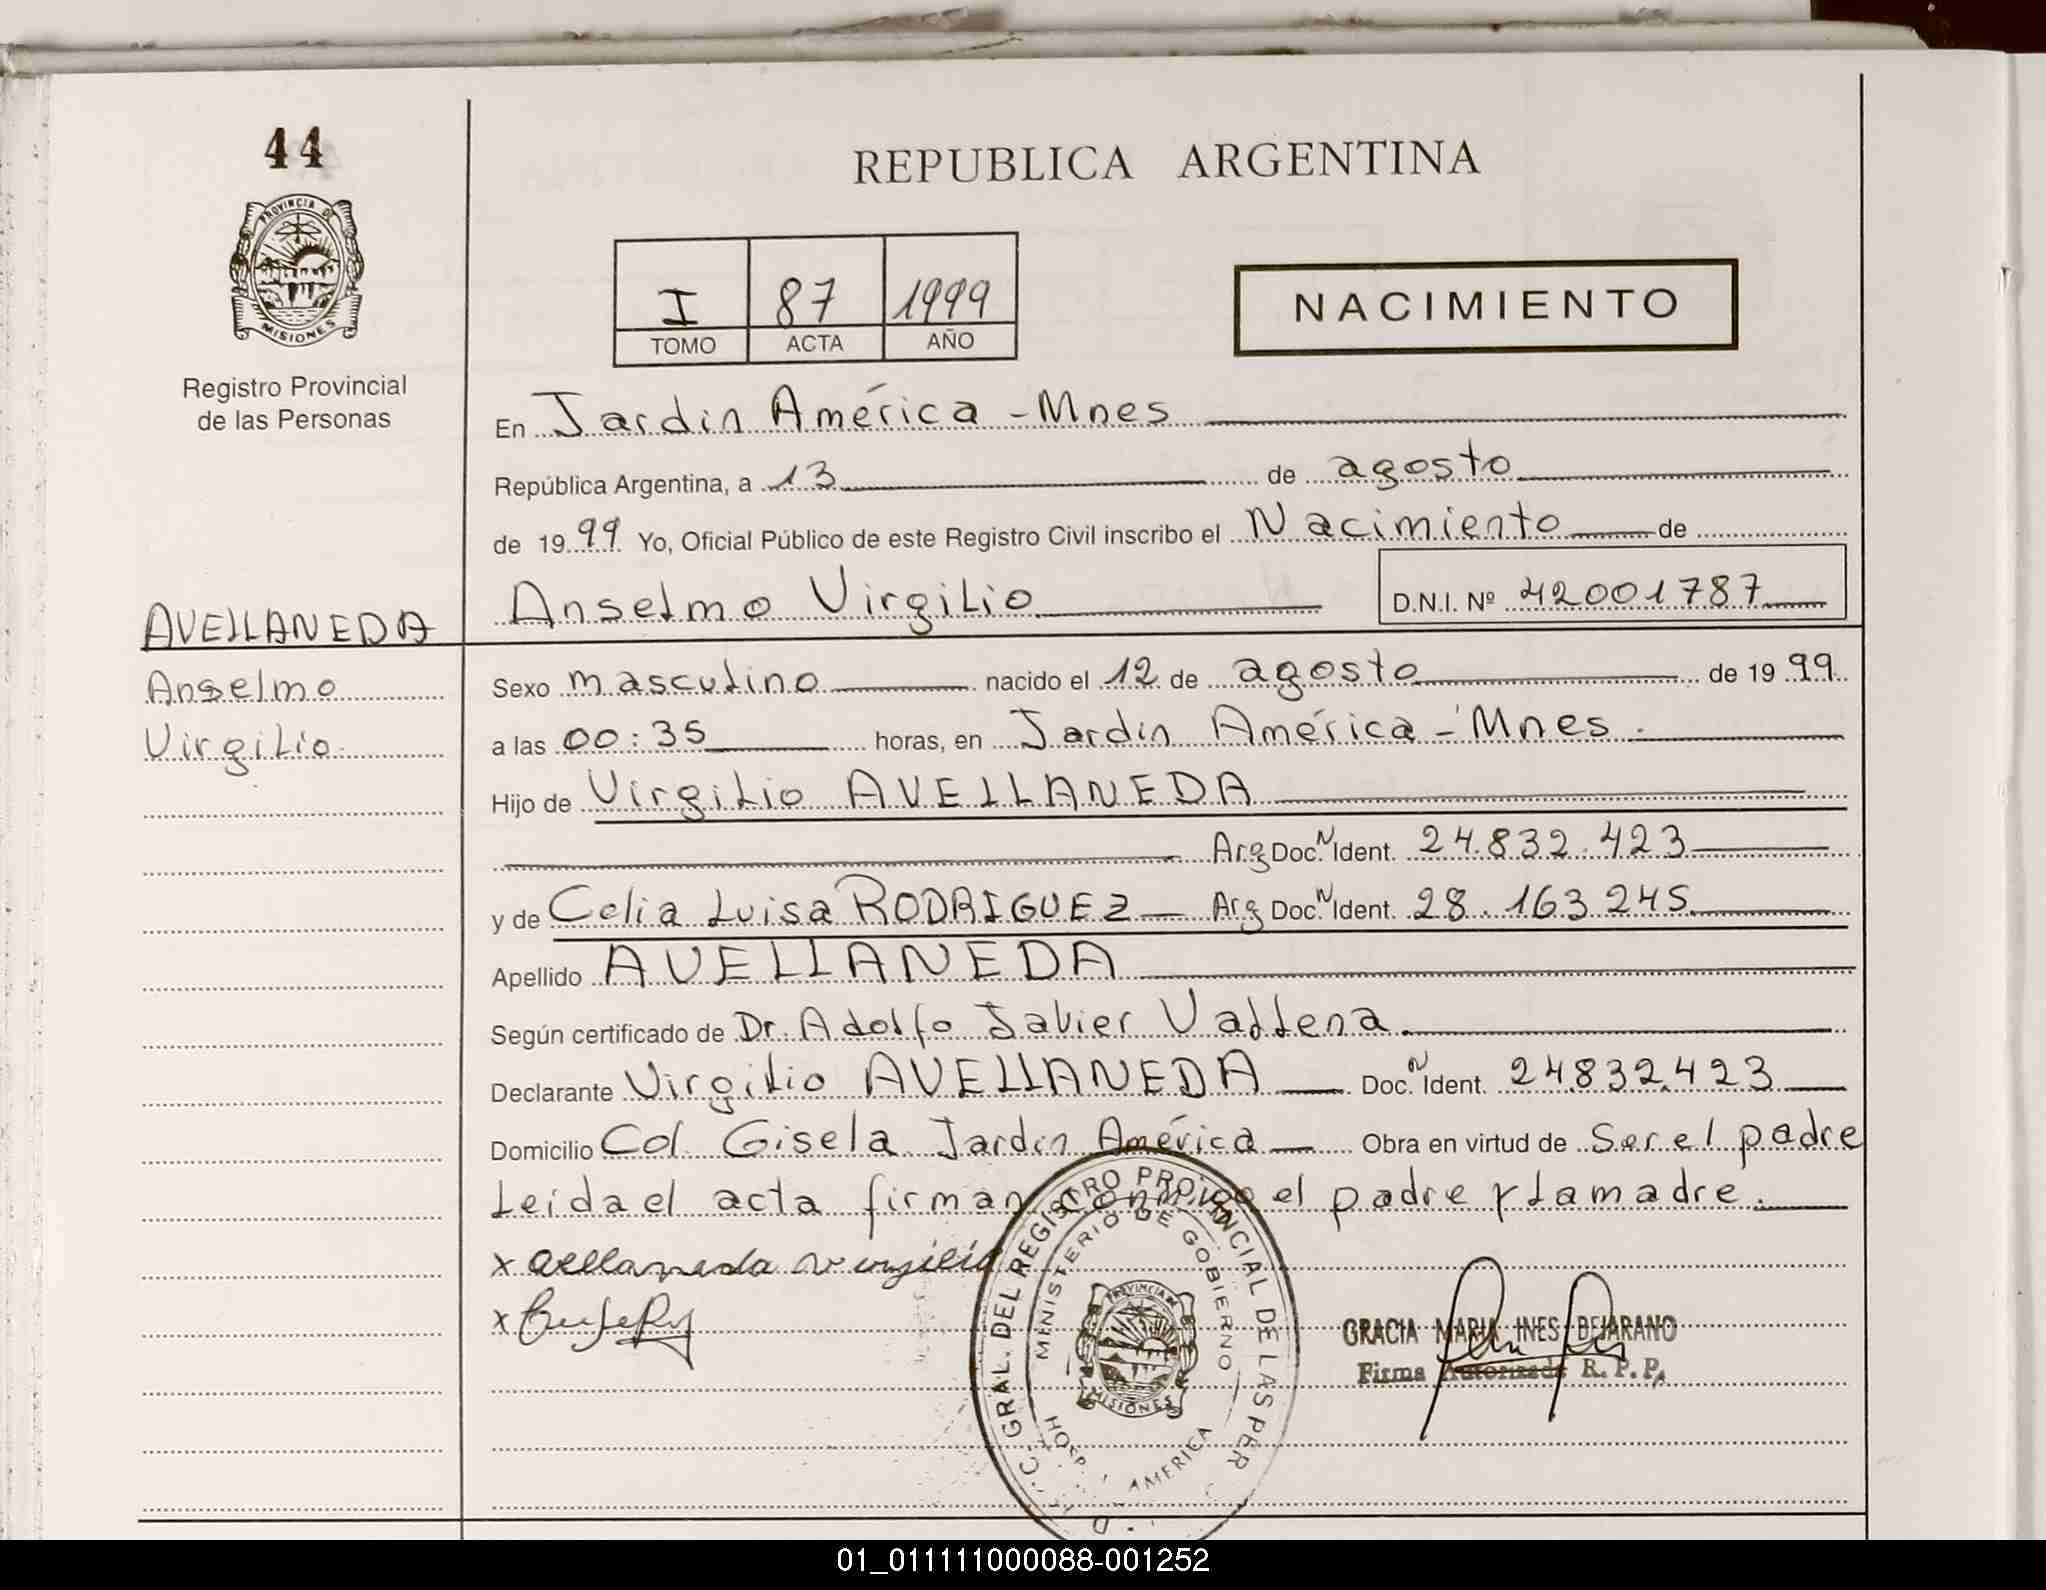 44
PROVINCIA DE
MISIONES
Registro Provincial
de las Personas
AVELLANEDA
Anselmo
Virgilio
REPUBLICA ARGENTINA
I 87 1999
TOMO ACTA AÑO
NACIMIENTO
En Jardin América - Mnes
República Argentina, a 13 de agosto
de 1999 Yo, Oficial Público de este Registro Civil inscribo el Nacimiento de
Anselmo Virgilio D.N.I. Nº 42001787
Sexo masculino nacido el 12 de agosto de 1999
a las 00:35 horas, en Jardin América - Mnes.
Hijo de Virgilio AVELLANEDA
Arg Doc. N Ident. 24.832.423
y de Celia Luisa RODRIGUEZ Arg Doc. N Ident. 28.163.245
Apellido AVELLANEDA
Según certificado de Dr. Adolfo Javier Vallena.
Declarante Virgilio AVELLANEDA Doc. N Ident. 24832.423
Domicilio Col. Gisela Jardin América Obra en virtud de Ser el padre
Leida el acta firman conmigo el padre y la madre.
x avellaneda virgilio
x
GRACIA MARIA INES BEJARANO
Firma Autorizada R. P. P.
GRAL. DEL REGISTRO PROVINCIAL DE LAS PER
MINISTERIO DE GOBIERNO
PROVINCIA DE
MISIONES
HOSP. AMERICA
01_011111000088-001252